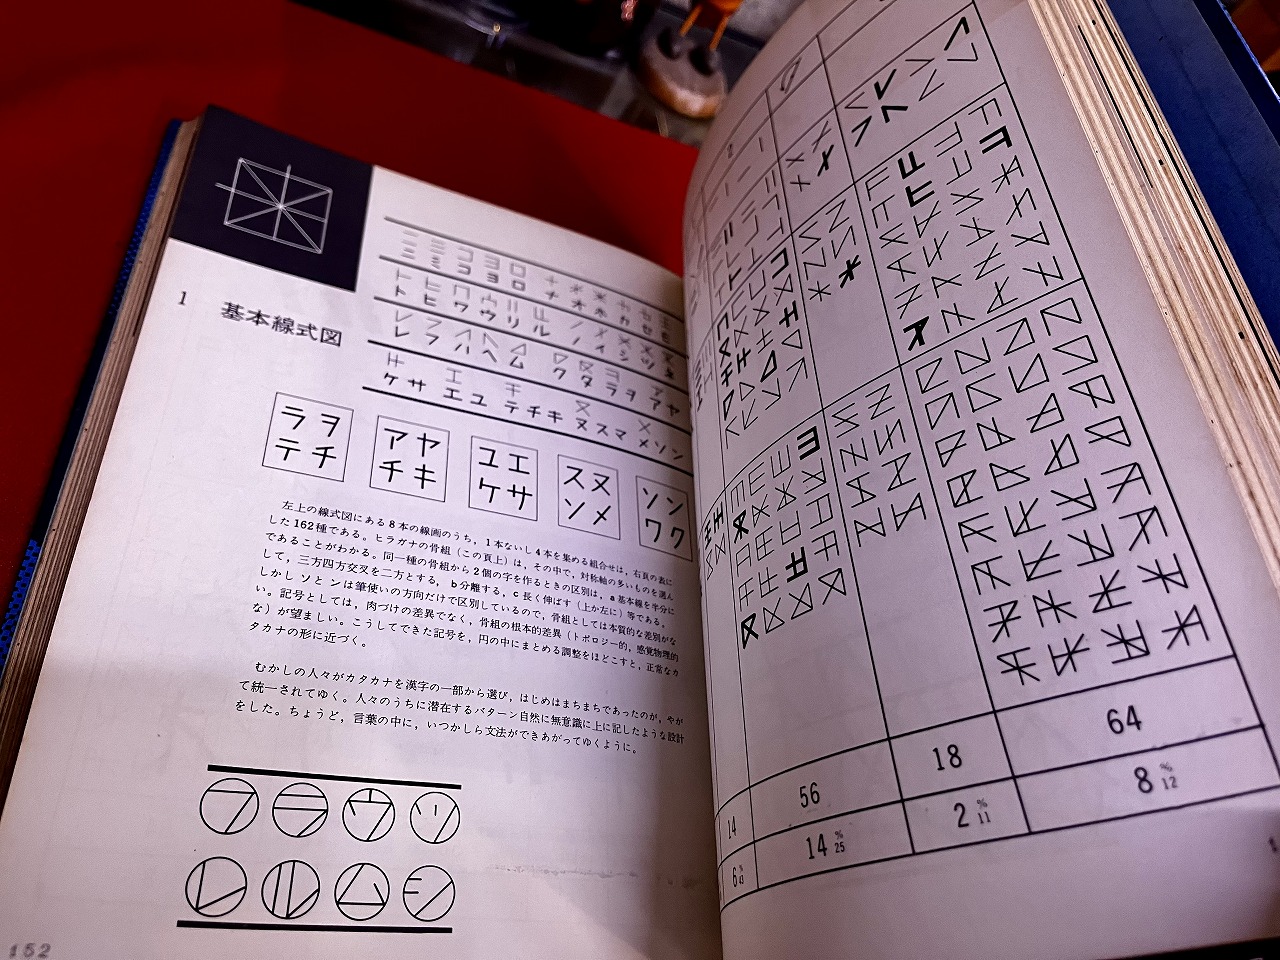 1 基本線式図
ニ ミ コ ヨ ロ ナ オ ホ カ セ モ
ト ヒ ワ ウ リ ル ノ イ シ ツ ネ
レ フ ハ ヘ ム ク タ ラ ヲ ア ヤ
ケ サ エ ユ テ チ キ ヌ ス マ メ ソ ン
ラ ヲ
テ チ
ア ヤ
チ キ
ユ エ
ケ サ
ス ヌ
ソ メ
ソ ン
ワ ク
左上の線式図にある8本の線画のうち，1本ないし4本を集める組合せは，右頁の表に
した162種である。ヒラガナの骨組（この頁上）は，その中で，対称軸の多いものを選ん
であることがわかる。同一種の骨組から2個の字を作るときの区別は，a 基本線を半分に
して，三方四方交叉を二方とする，b 分離する，c 長く伸ばす（上か左に）等である。
しかし ソ と ン は筆使いの方向だけで区別しているので，骨組としては本質的な差別がな
い。記号としては，肉づけの差異でなく，骨組の根本的差異（トポロジー的，感覚物理的
な）が望ましい。こうしてできた記号を，円の中にまとめる調整をほどこすと，正常なカ
タカナの形に近づく。
むかしの人々がカタカナを漢字の一部から選び，はじめはまちまちであったのが，やが
て統一されてゆく。人々のうちに潜在するパターン自然に無意識に上に記したような設計
をした。ちょうど，言葉の中に，いつかしら文法ができあがってゆくように。
フ ラ ウ ツ
レ ル ム シ
152
14 56 18 64
6 % 43 14 % 25 2 % 11 8 % 12